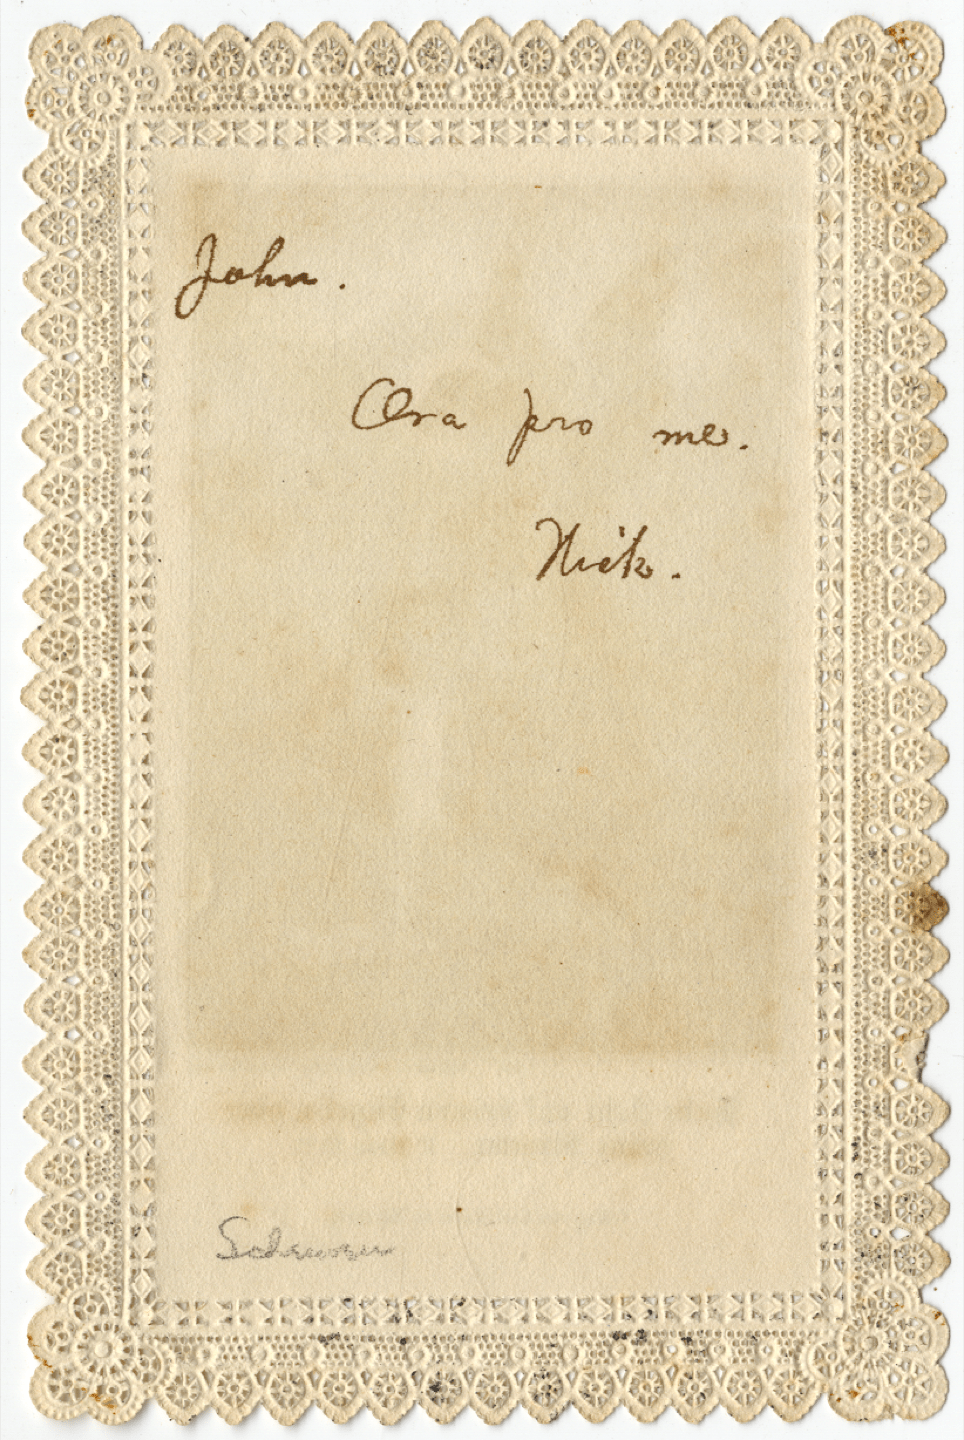 John.
Ora pro me.
Nick.